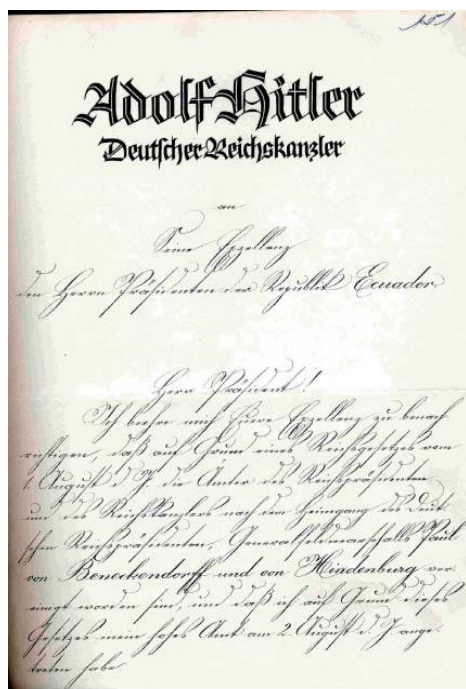 151
Adolf Hitler
Deutscher Reichskanzler
an
Seine Exzellenz
den Herrn Präsidenten der Republik Ecuador
Herr Präsident!
Ich beehre mich Euere Exzellenz zu benach
richtigen, daß auf Grund eines Reichsgesetzes vom
1. August d. J. die Ämter des Reichspräsidenten
und des Reichskanzlers nach dem Heimgang des Deut
schen Reichspräsidenten, Generalfeldmarschalls Paul
von Beneckendorff und von Hindenburg ver
einigt worden sind, und daß ich auf Grund dieses
Gesetzes mein hohes Amt am 2. August d. J. ange
treten habe.